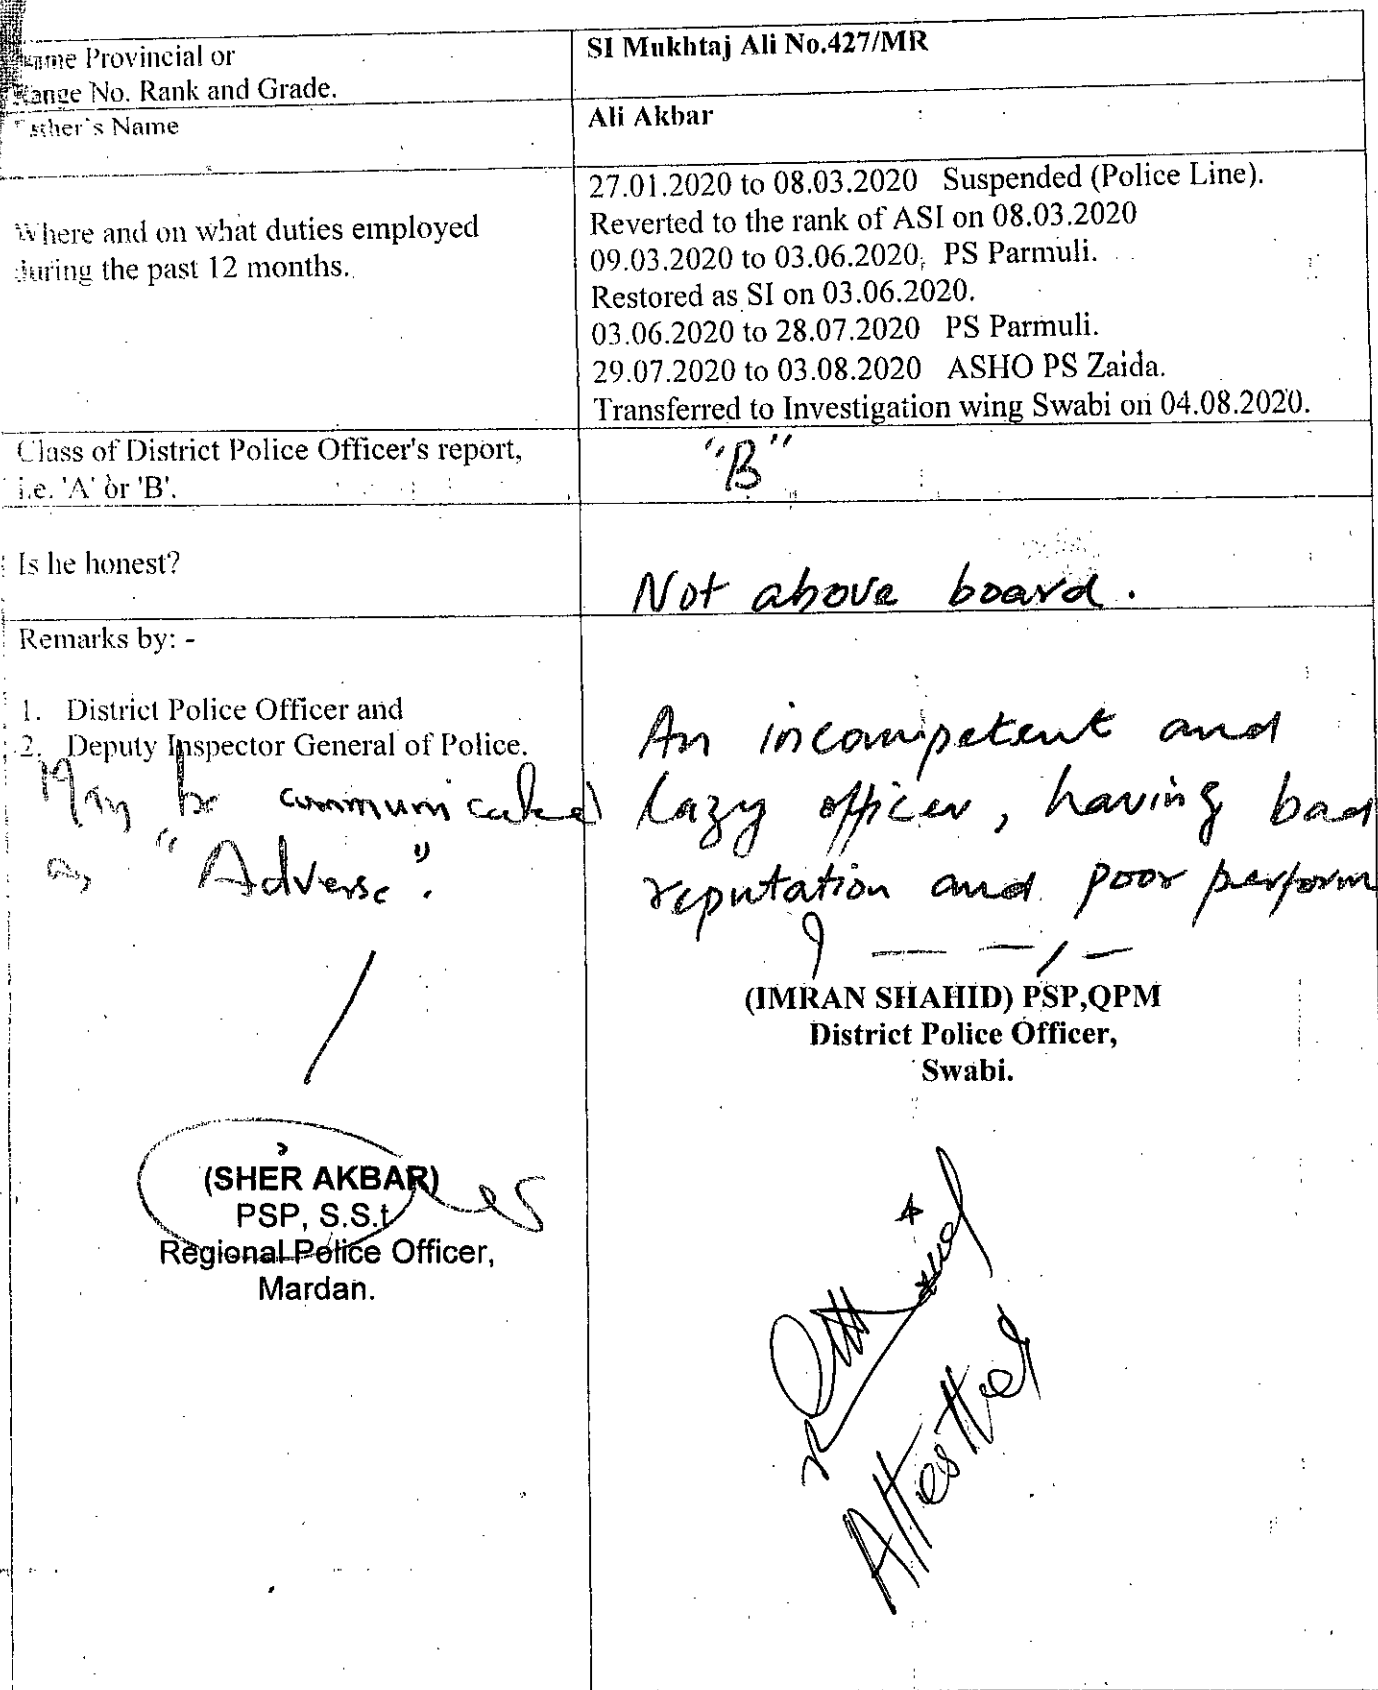 Name Provincial or
Range No. Rank and Grade.
SI Mukhtaj Ali No.427/MR
Father's Name
Ali Akbar
Where and on what duties employed
during the past 12 months.
27.01.2020 to 08.03.2020 Suspended (Police Line).
Reverted to the rank of ASI on 08.03.2020
09.03.2020 to 03.06.2020, PS Parmuli.
Restored as SI on 03.06.2020.
03.06.2020 to 28.07.2020 PS Parmuli.
29.07.2020 to 03.08.2020 ASHO PS Zaida.
Transferred to Investigation wing Swabi on 04.08.2020.
Class of District Police Officer's report,
i.e. 'A' or 'B'.
"B"
Is he honest?
Not above board.
Remarks by: -
1. District Police Officer and
2. Deputy Inspector General of Police.
May be communicated
as "Adverse".
An incompetent and
lazy officer, having bad
reputation and poor perform
(IMRAN SHAHID) PSP,QPM
District Police Officer,
Swabi.
(SHER AKBAR)
PSP, S.S.t
Regional Police Officer,
Mardan.
Attested